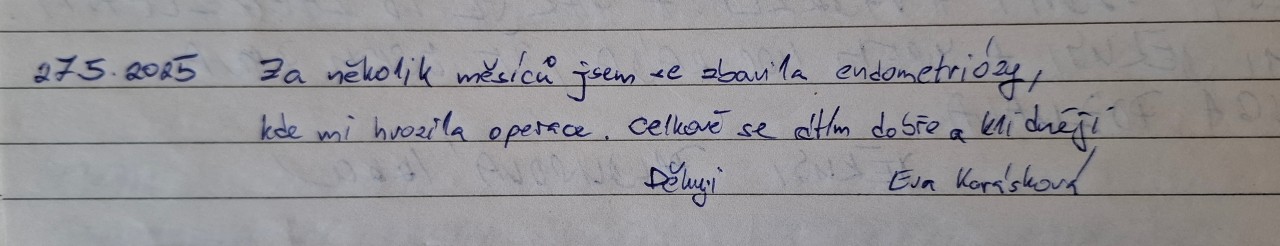 27.5.2025 Za několik měsíců jsem se zbavila endometriózy,
kde mi hrozila operace. Celkově se cítím dobře a klidněji
Děkuji Eva Karásková